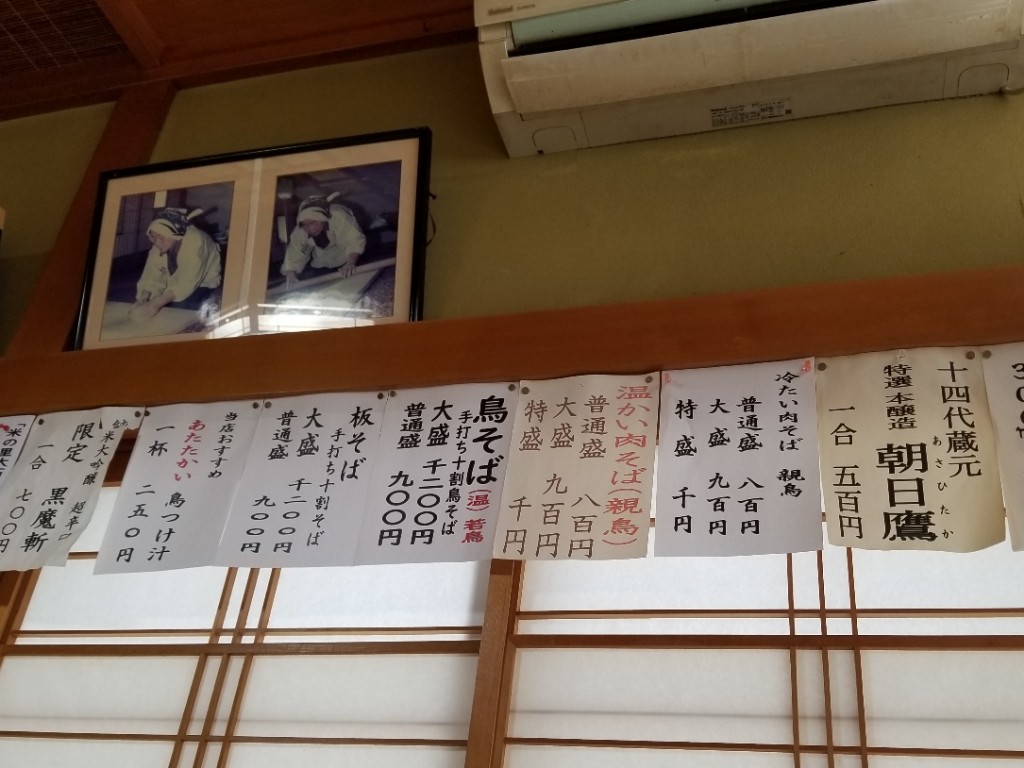 十四代蔵元
特選本醸造
朝日鷹
あさひたか
一合 五百円
冷たい肉そば 親鳥
普通盛 八百円
大盛 九百円
特盛 千円
温かい肉そば(親鳥)
普通盛 八百円
大盛 九百円
特盛 千円
鳥そば(温)若鳥
手打ち十割鳥そば
大盛 千二〇〇円
普通盛 九〇〇円
板そば
手打ち十割そば
大盛 千二〇〇円
普通盛 九〇〇円
当店おすすめ
あたたかい 鳥つけ汁
一杯 二五〇円
米大吟醸 超辛口
限定 黒魔斬
一合 七〇〇円